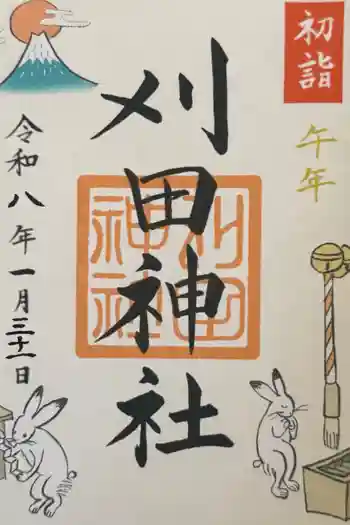 初詣
午年
刈田神社
刈田神社
令和八年一月三十一日